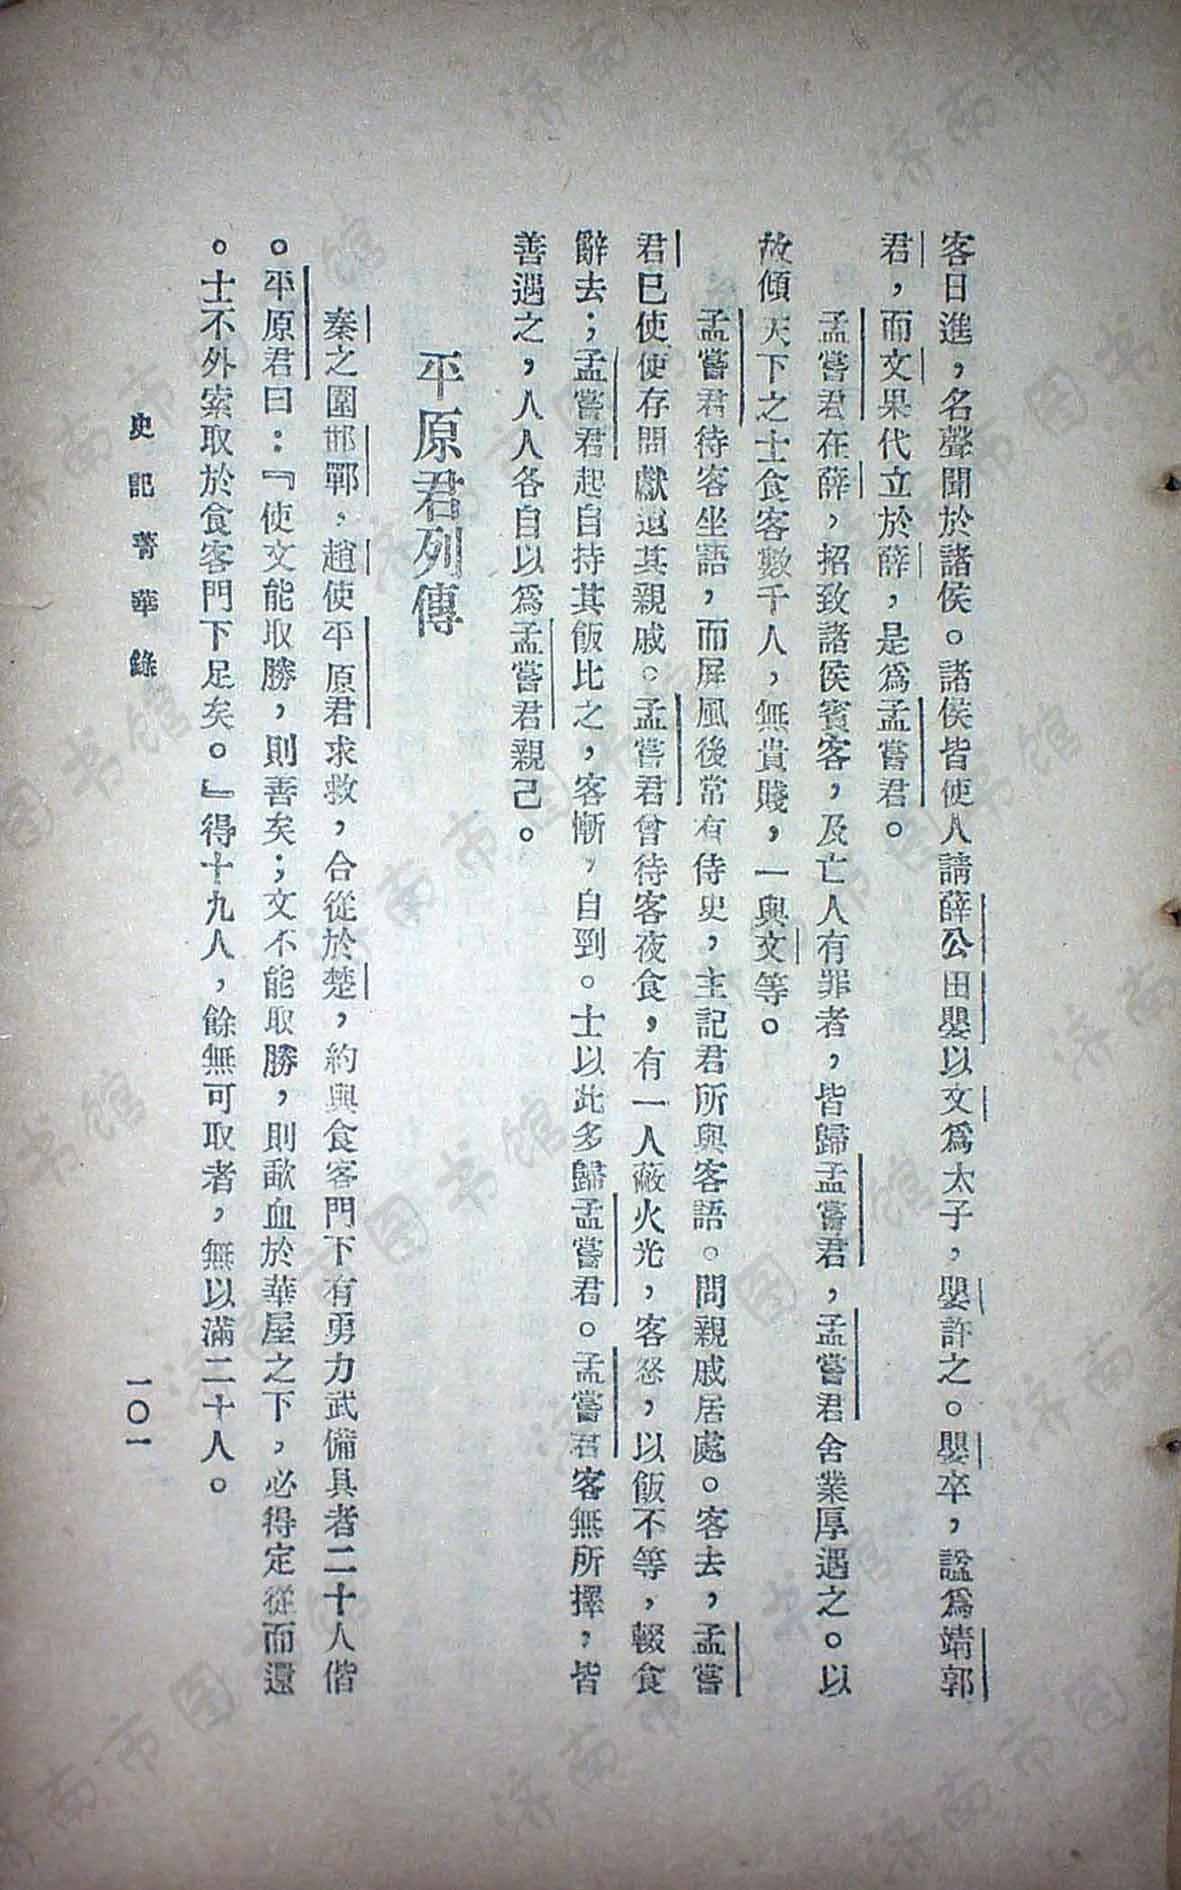 客日進，名聲聞於諸侯。諸侯皆使人請薛公田嬰以文爲太子，嬰許之。嬰卒，諡爲靖郭
君，而文果代立於薛，是爲孟嘗君。
孟嘗君在薛，招致諸侯賓客，及亡人有罪者，皆歸孟嘗君，孟嘗君舍業厚遇之。以
故傾天下之士食客數千人，無貴賤，一與文等。
孟嘗君待客坐語，而屏風後常有侍史，主記君所與客語。問親戚居處。客去，孟嘗
君已使使存問獻遺其親戚。孟嘗君曾待客夜食，有一人蔽火光，客怒，以飯不等，輟食
辭去；孟嘗君起自持其飯比之，客慚，自剄。士以此多歸孟嘗君。孟嘗君客無所擇，皆
善遇之，人人各自以爲孟嘗君親己。
平原君列傳
秦之圍邯鄲，趙使平原君求救，合從於楚，約與食客門下有勇力武備具者二十人偕
。平原君曰：『使文能取勝，則善矣；文不能取勝，則歃血於華屋之下，必得定從而還
。士不外索取於食客門下足矣。』得十九人，餘無可取者，無以滿二十人。
史記菁華錄
一〇一
济南市图书馆